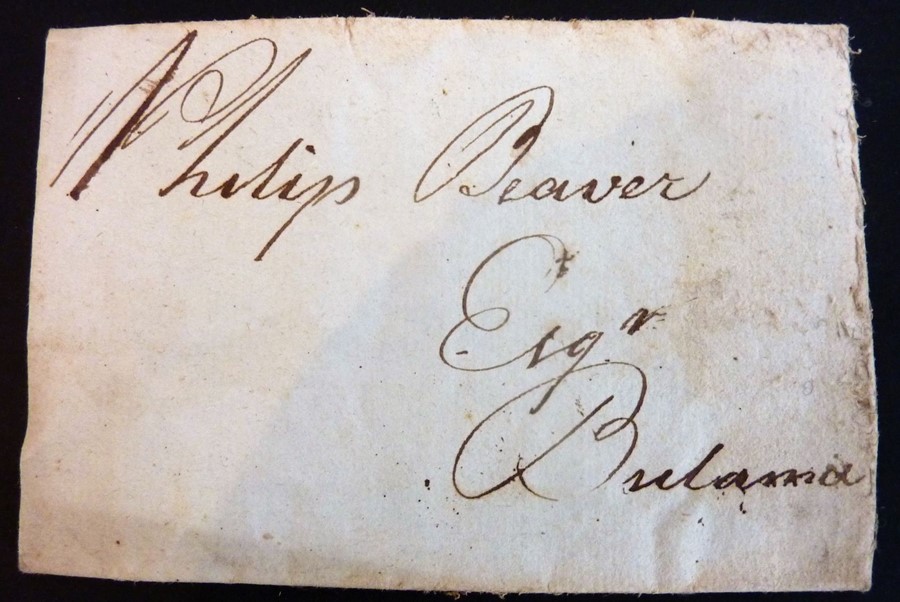 Philip Beaver
Esqr
Bulama